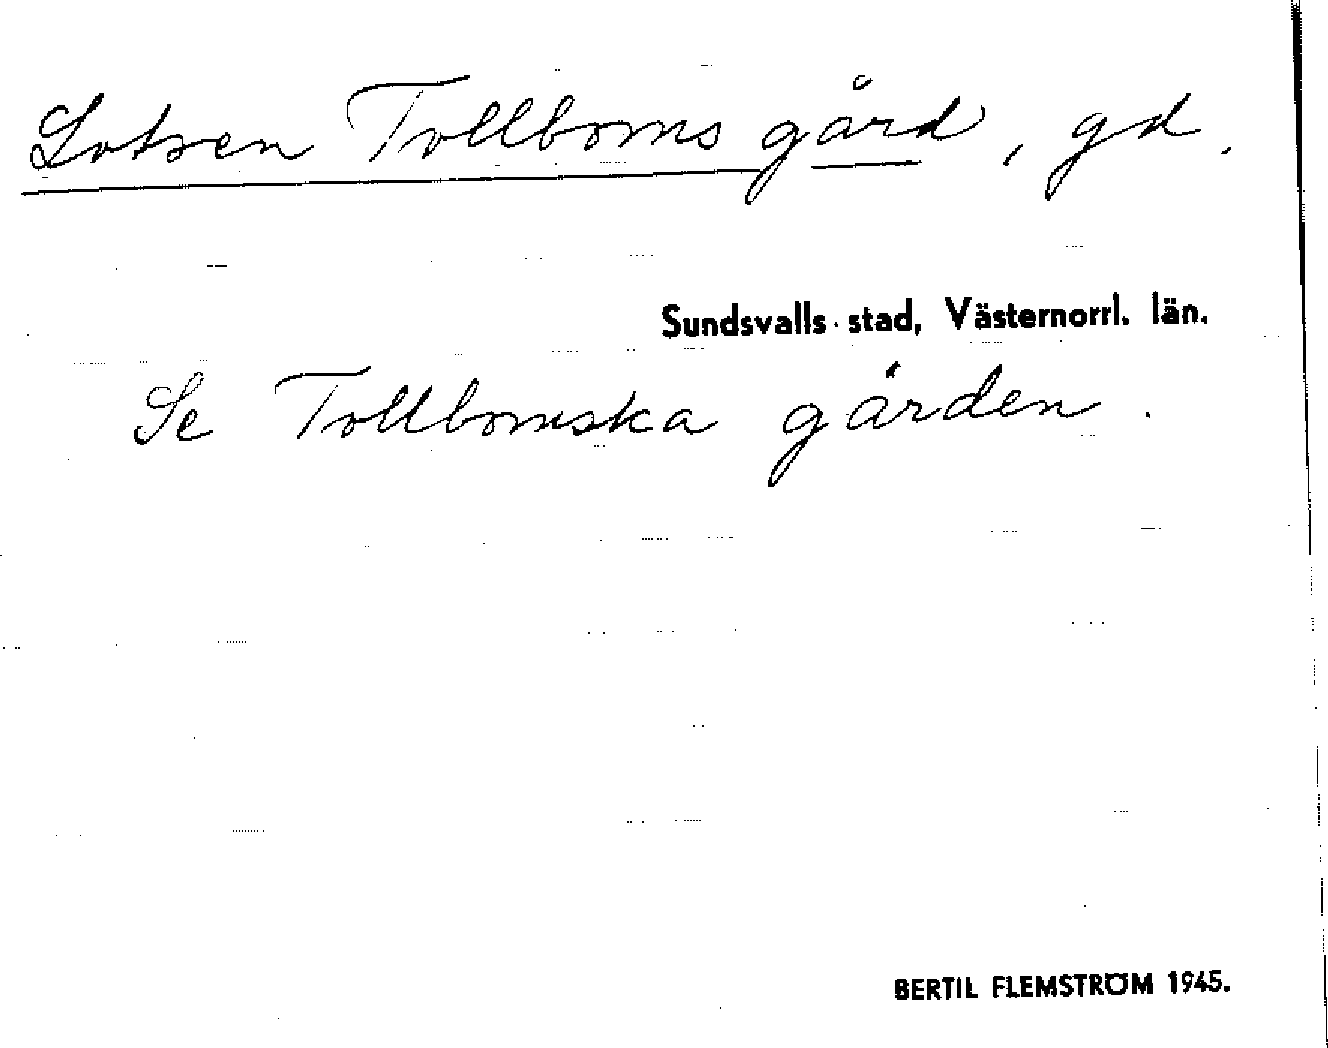 Lotsen Tollboms gård, gd.
Sundsvalls stad, Västernorrl. län.
Se Tollbomska gården.
BERTIL FLEMSTRÖM 1945.